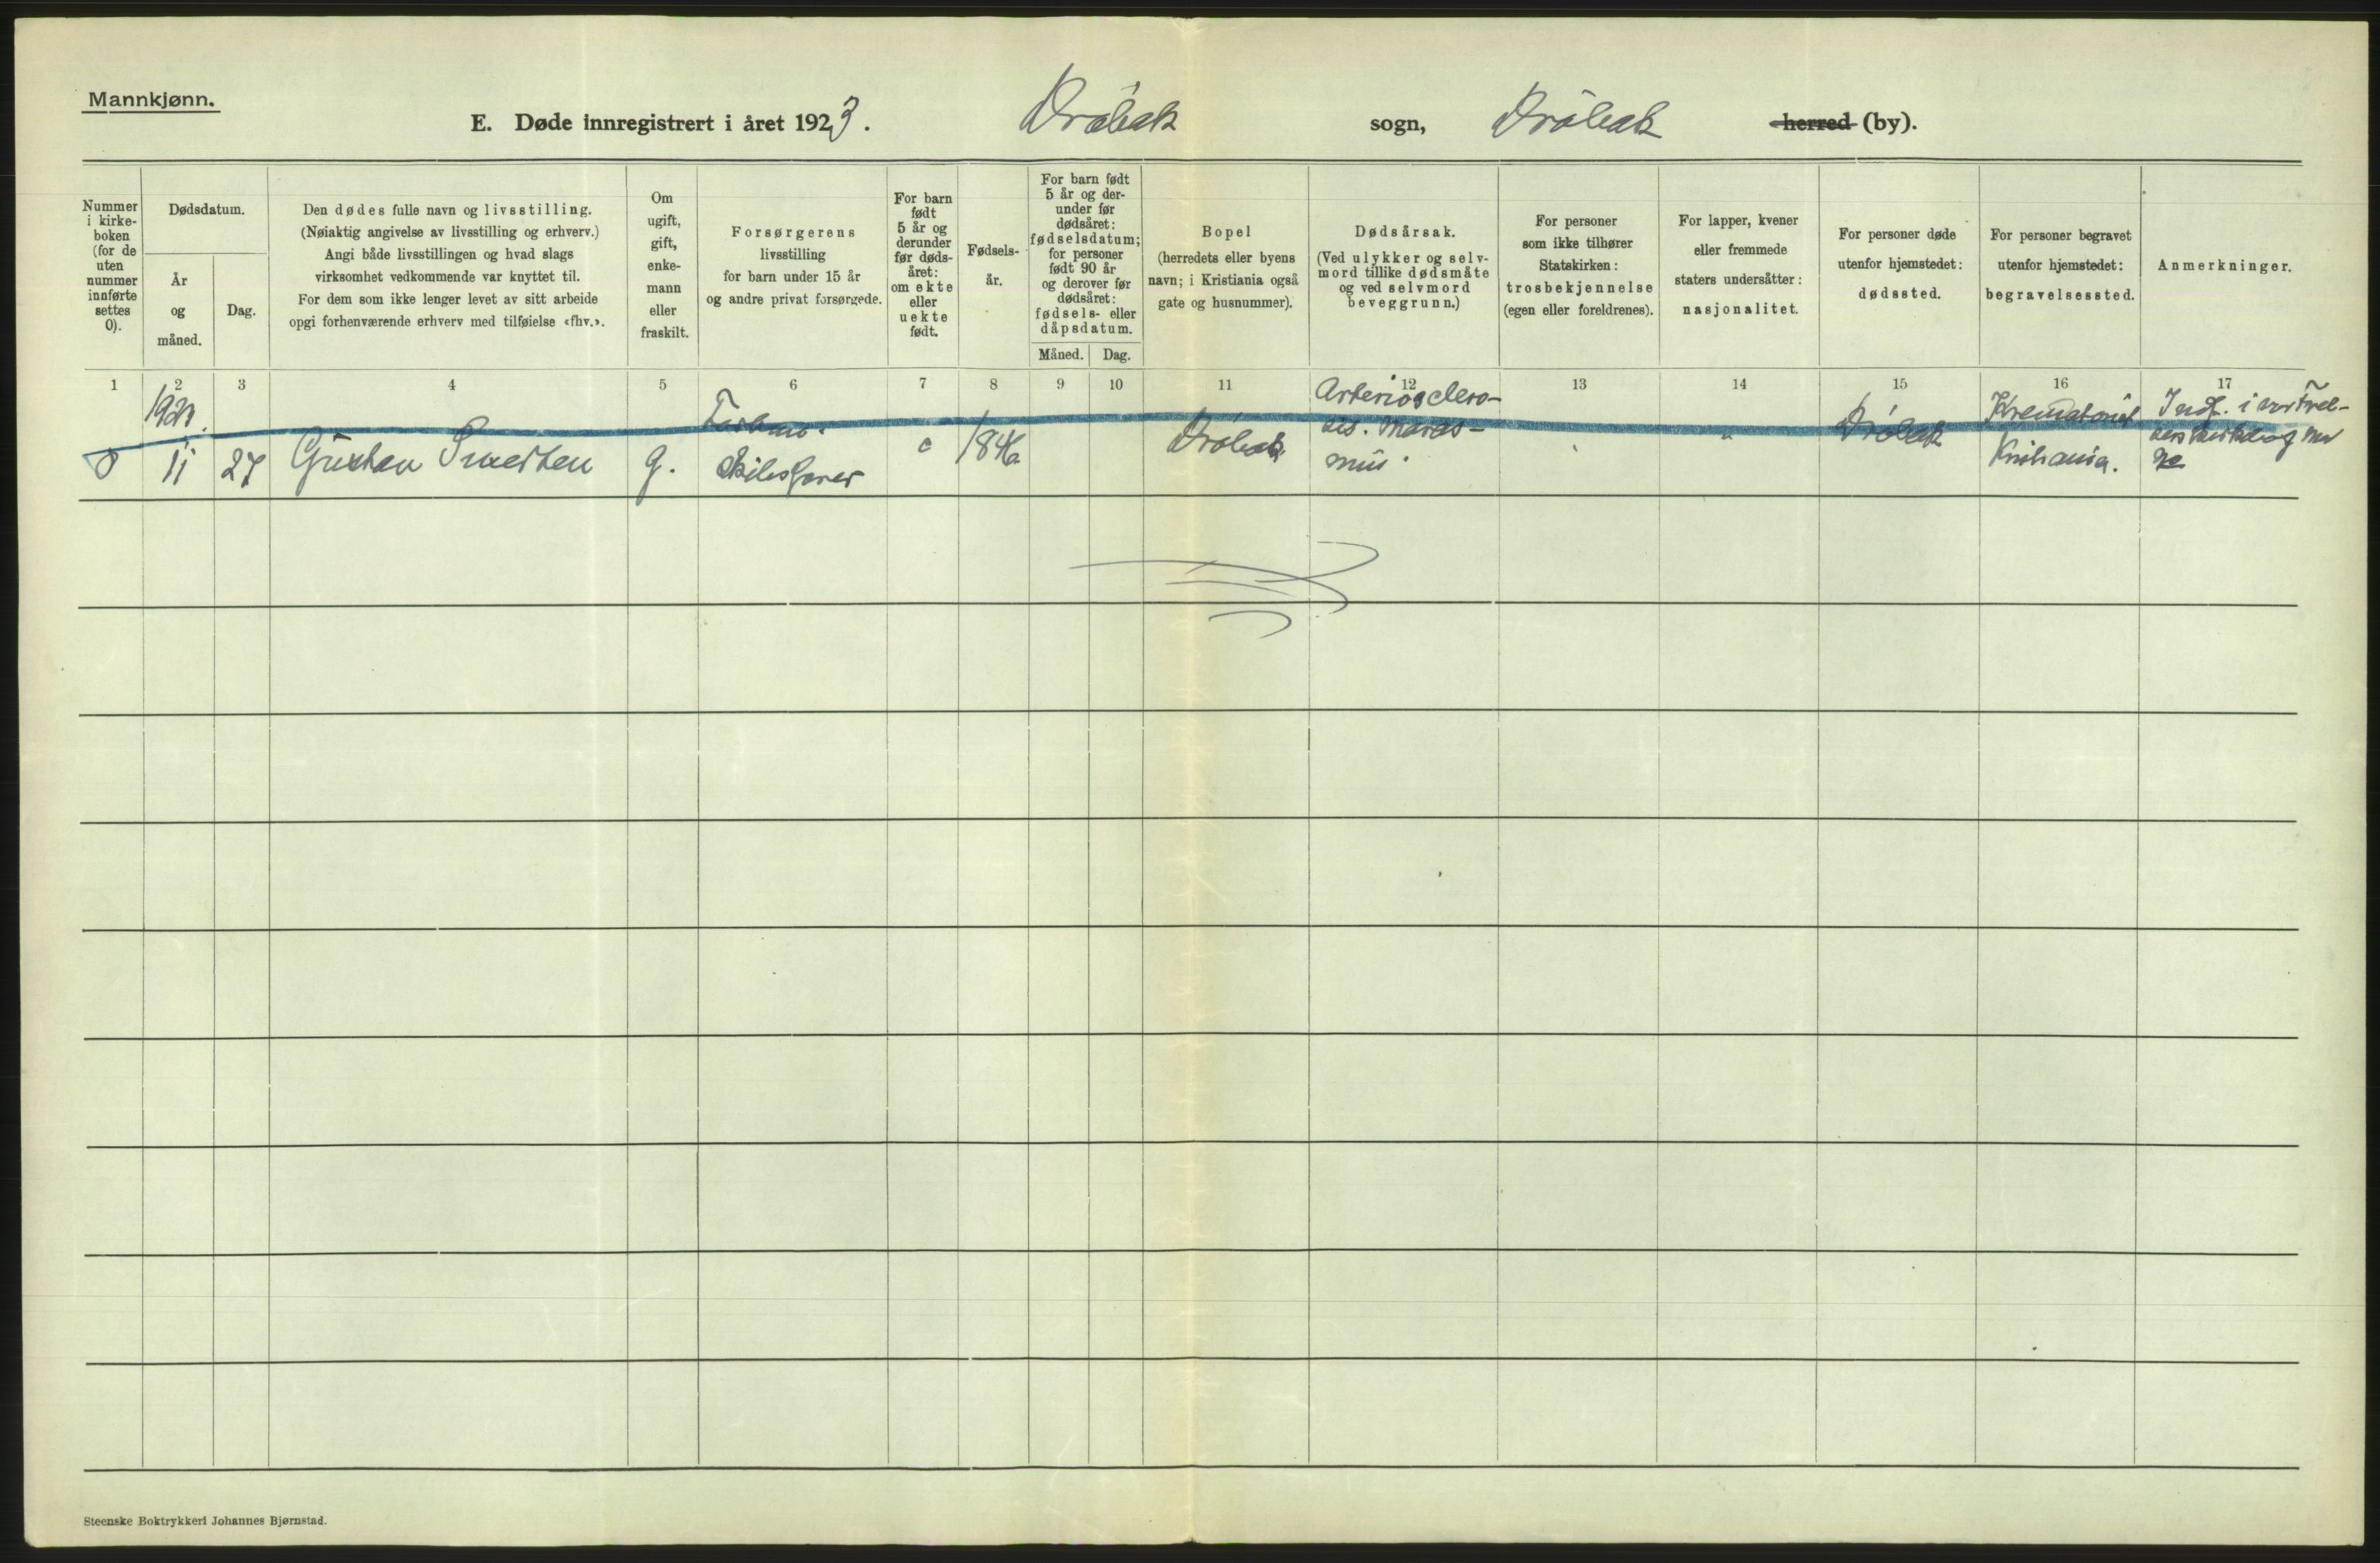 Mannkjønn.
E. Døde innregistrert i året 1923. Drøbak sogn, Drøbak herred (by).
Nummer
i kirke-
boken
(for de
uten
nummer
innførte
settes
0).
Dødsdatum.
År
og
måned.
Dag.
Den dødes fulle navn og livsstilling.
(Nøiaktig angivelse av livsstilling og erhverv.)
Angi både livsstillingen og hvad slags
virksomhet vedkommende var knyttet til.
For dem som ikke lenger levet av sitt arbeide
opgi forhenværende erhverv med tilføielse «fhv.».
Om
ugift,
gift,
enke-
mann
eller
fraskilt.
Forsørgerens
livsstilling
for barn under 15 år
og andre privat forsørgede.
For barn
født
5 år og
derunder
før døds-
året:
om ekte
eller
uekte
født.
Fødsels-
år.
For barn født
5 år og der-
under før
dødsåret:
fødselsdatum;
for personer
født 90 år
og derover før
dødsåret:
fødsels- eller
dåpsdatum.
Måned. Dag.
Bopel
(herredets eller byens
navn; i Kristiania også
gate og husnummer).
Dødsårsak.
(Ved ulykker og selv-
mord tillike dødsmåte
og ved selvmord
beveggrunn.)
For personer
som ikke tilhører
Statskirken:
trosbekjennelse
(egen eller foreldrenes).
For lapper, kvener
eller fremmede
staters undersåtter:
nasjonalitet.
For personer døde
utenfor hjemstedet:
dødssted.
For personer begravet
utenfor hjemstedet:
begravelsessted.
Anmerkninger.
1 2 3 4 5 6 7 8 9 10 11 12 13 14 15 16 17
0
11
27
g.
Skibsfører
1846
Drøbak
Arterioscléro-
sis. Maras-
mus.
Drøbak
Krematoriet
Kristiania.
Indf. i vor Frel-
sers kirkebog
Steenske Boktrykkeri Johannes Bjørnstad.